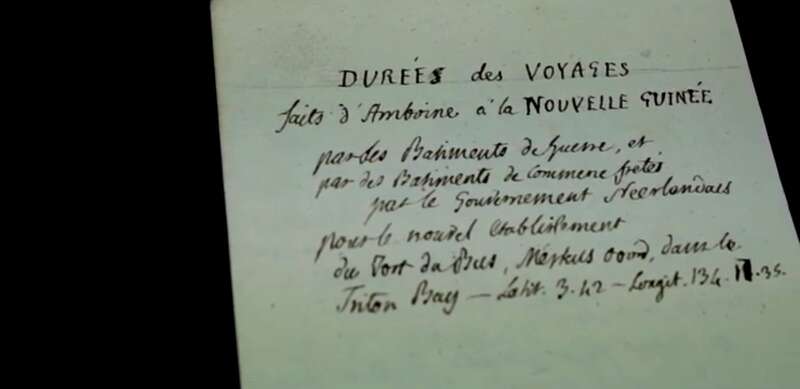 DURÉES des VOYAGES
faits d'Amboine à la NOUVELLE GUINÉE
par des Batiments de Guerre, et
par des Batiments de Commerce fretés
par le Gouvernement Néerlandais
pour le nouvel etablissement
du Fort du Bus, Merkus oord, dans le
Triton Bay — Latit. 3.42 — Longit. 134. .35.